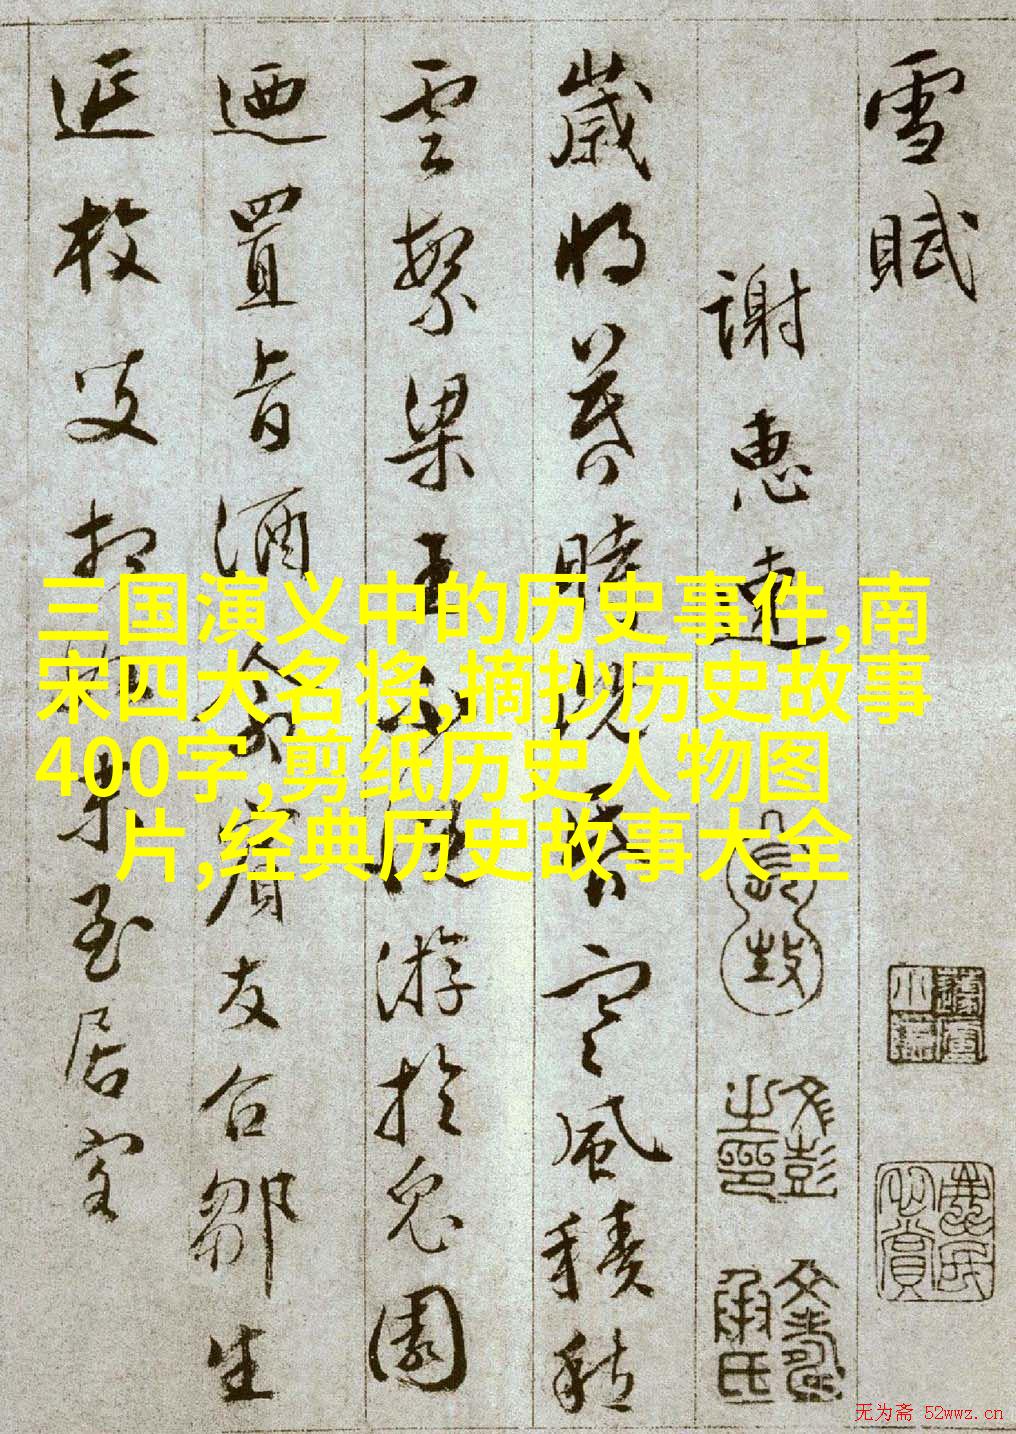 雪賦
謝惠連
歲將暮時既昏寒風積愁
雲繁梁王不悅游於兔園
迺置旨酒命賓友召鄒生
延枚叟相如末至居客
三国演义中的历史事件,南
宋四大名将,摘抄历史故事
400字,剪纸历史人物图
片,经典历史故事大全
文彭之印
文壽承氏
无为斋 52wwz.cn